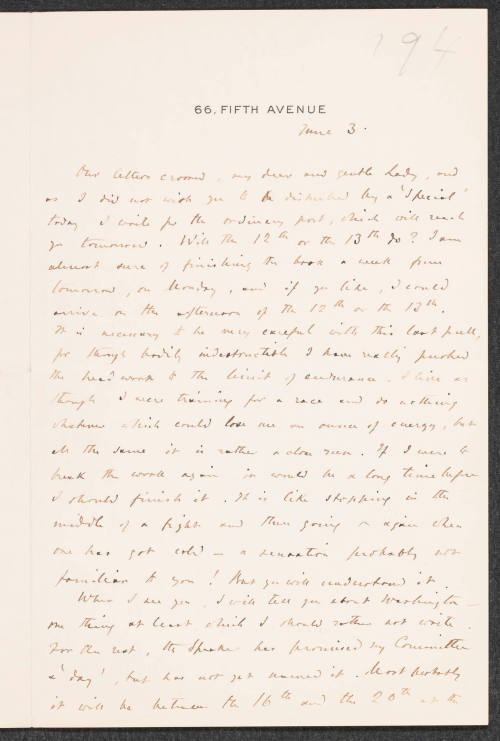 194
66, FIFTH AVENUE
June 3.
Our letters crossed, my dear and gentle Lady, and
as I did not wish you to be disturbed by a 'Special'
today I write for the ordinary post, which will reach
you tomorrow. Will the 12th or the 13th do? I am
almost sure of finishing the book a week from
tomorrow, on Monday, and if you like, I could
arrive on the afternoon of the 12th or the 13th.
It is necessary to be very careful with this last pull,
for though bodily indestructible I have really pushed
the head work to the limit of endurance. I live as
though I were training for a race and do nothing
whatever which could lose me an ounce of energy, but
all the same it is rather a close run. If I were to
break the work again it would be a long time before
I should finish it. It is like stopping in the
middle of a fight and then going on again when
one has got cold – a sensation probably not
familiar to you! But you will understand it.
When I see you, I will tell you about Washington –
one thing at least which I should rather not write.
For the rest, the Speaker has promised my Committee
a 'day', but has not yet named it. Most probably
it will be between the 16th and the 20th at the